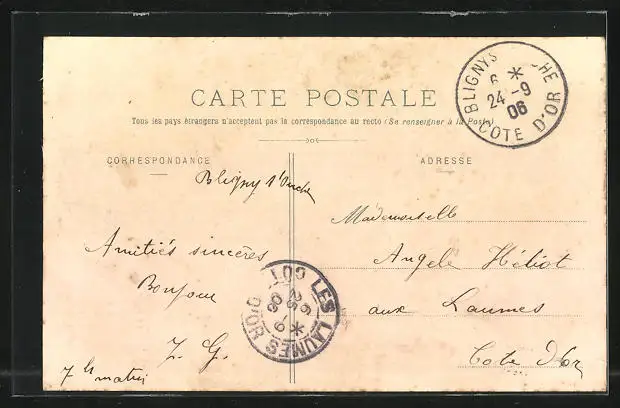 CARTE POSTALE
Tous les pays étrangers n'acceptent pas la correspondance au recto (Se renseigner à la Poste)
CORRESPONDANCE
ADRESSE
Bligny s/Ouche
Amitiés sincères
Bonjour
7 h matin
Mademoiselle
Angele Héliot
aux Laumes
Cote d'Or
BLIGNY S CHE
6 *
24 -9
06
COTE D'OR
LES LAUMES COT D'OR
6 *
25 -9
06